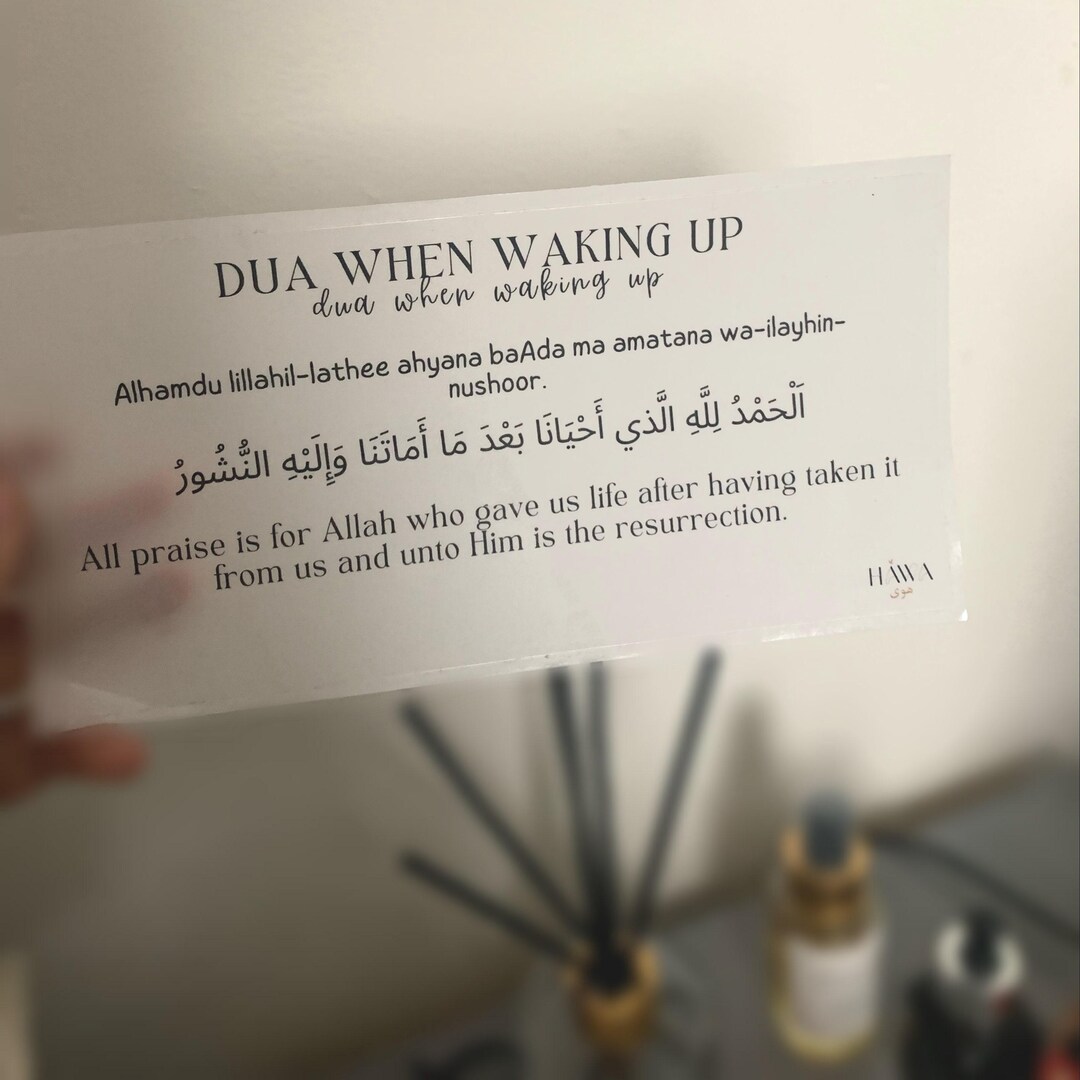 DUA WHEN WAKING UP
dua when waking up
Alhamdu lillahil-lathee ahyana baAda ma amatana wa-ilayhin-
nushoor.
اَلْحَمْدُ لِلَّهِ الَّذي أَحْيَانَا بَعْدَ مَا أَمَاتَنَا وَإِلَيْهِ النُّشُورُ
All praise is for Allah who gave us life after having taken it
from us and unto Him is the resurrection.
HAWA
هوى